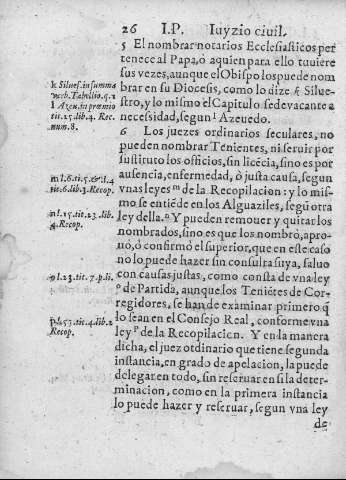 26 I.P. Iuyzio ciuil.
5 El nombrar notarios Ecclesiasticos per
tenece al Papa, ò aquien para ello tuuiere
sus vezes, aunque el Obispo los puede nom
k Silues. in summa
verb. Tabellio. q. 2
brar en su Diocesis, como lo dize k Silue-
l Azeu. in proemio
tit. 25. lib. 4. Rec.
num. 8.
stro, y lo mismo el Capitulo sedevacante a
necessidad, segun l Azeuedo.
6 Los juezes ordinarios seculares, no
pueden nombrar Tenientes, ni seruir por
sustituto los officios, sin licẽcia, sino es por
m l. 6. ti. 5. & l. 4
tit. 6. lib. 3. Recop.
ausencia, enfermedad, ò justa causa, segun
vnas leyes m de la Recopilacion: y lo mis-
mo se entiẽde en los Alguaziles, segũ otra
n l. 15. tit. 23. lib.
4. Recop.
ley della. n Y pueden remouer y quitar los
nombrados, sino es que los nombrò, apro-
uò, ò confirmò el superior, que en este caso
no lo puede hazer sin consulta suya, saluo
o l. 23. tit. 7. p. li.
con causas justas, como consta de vna ley
o de Partida, aunque los Teniẽtes de Cor-
regidores, se han de examinar primero q̃
p l. 53. tit. 4. lib. 2
Recop.
lo sean en el Consejo Real, conforme vna
ley p de la Recopilacion. Y en la manera
dicha, el juez otdinario que tiene segunda
instancia, en grado de apelacion, la puede
delegar en todo, sin reseruar en si la deter-
minacion, como en la primera instancia
lo puede hazer y reseruar, segun vna ley
de